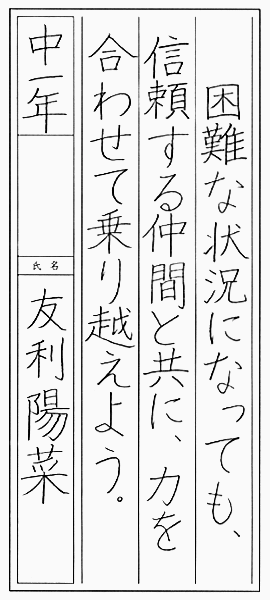 困難な状況になっても、
信頼する仲間と共に、力を
合わせて乗り越えよう。
中一年
氏名
友利陽菜